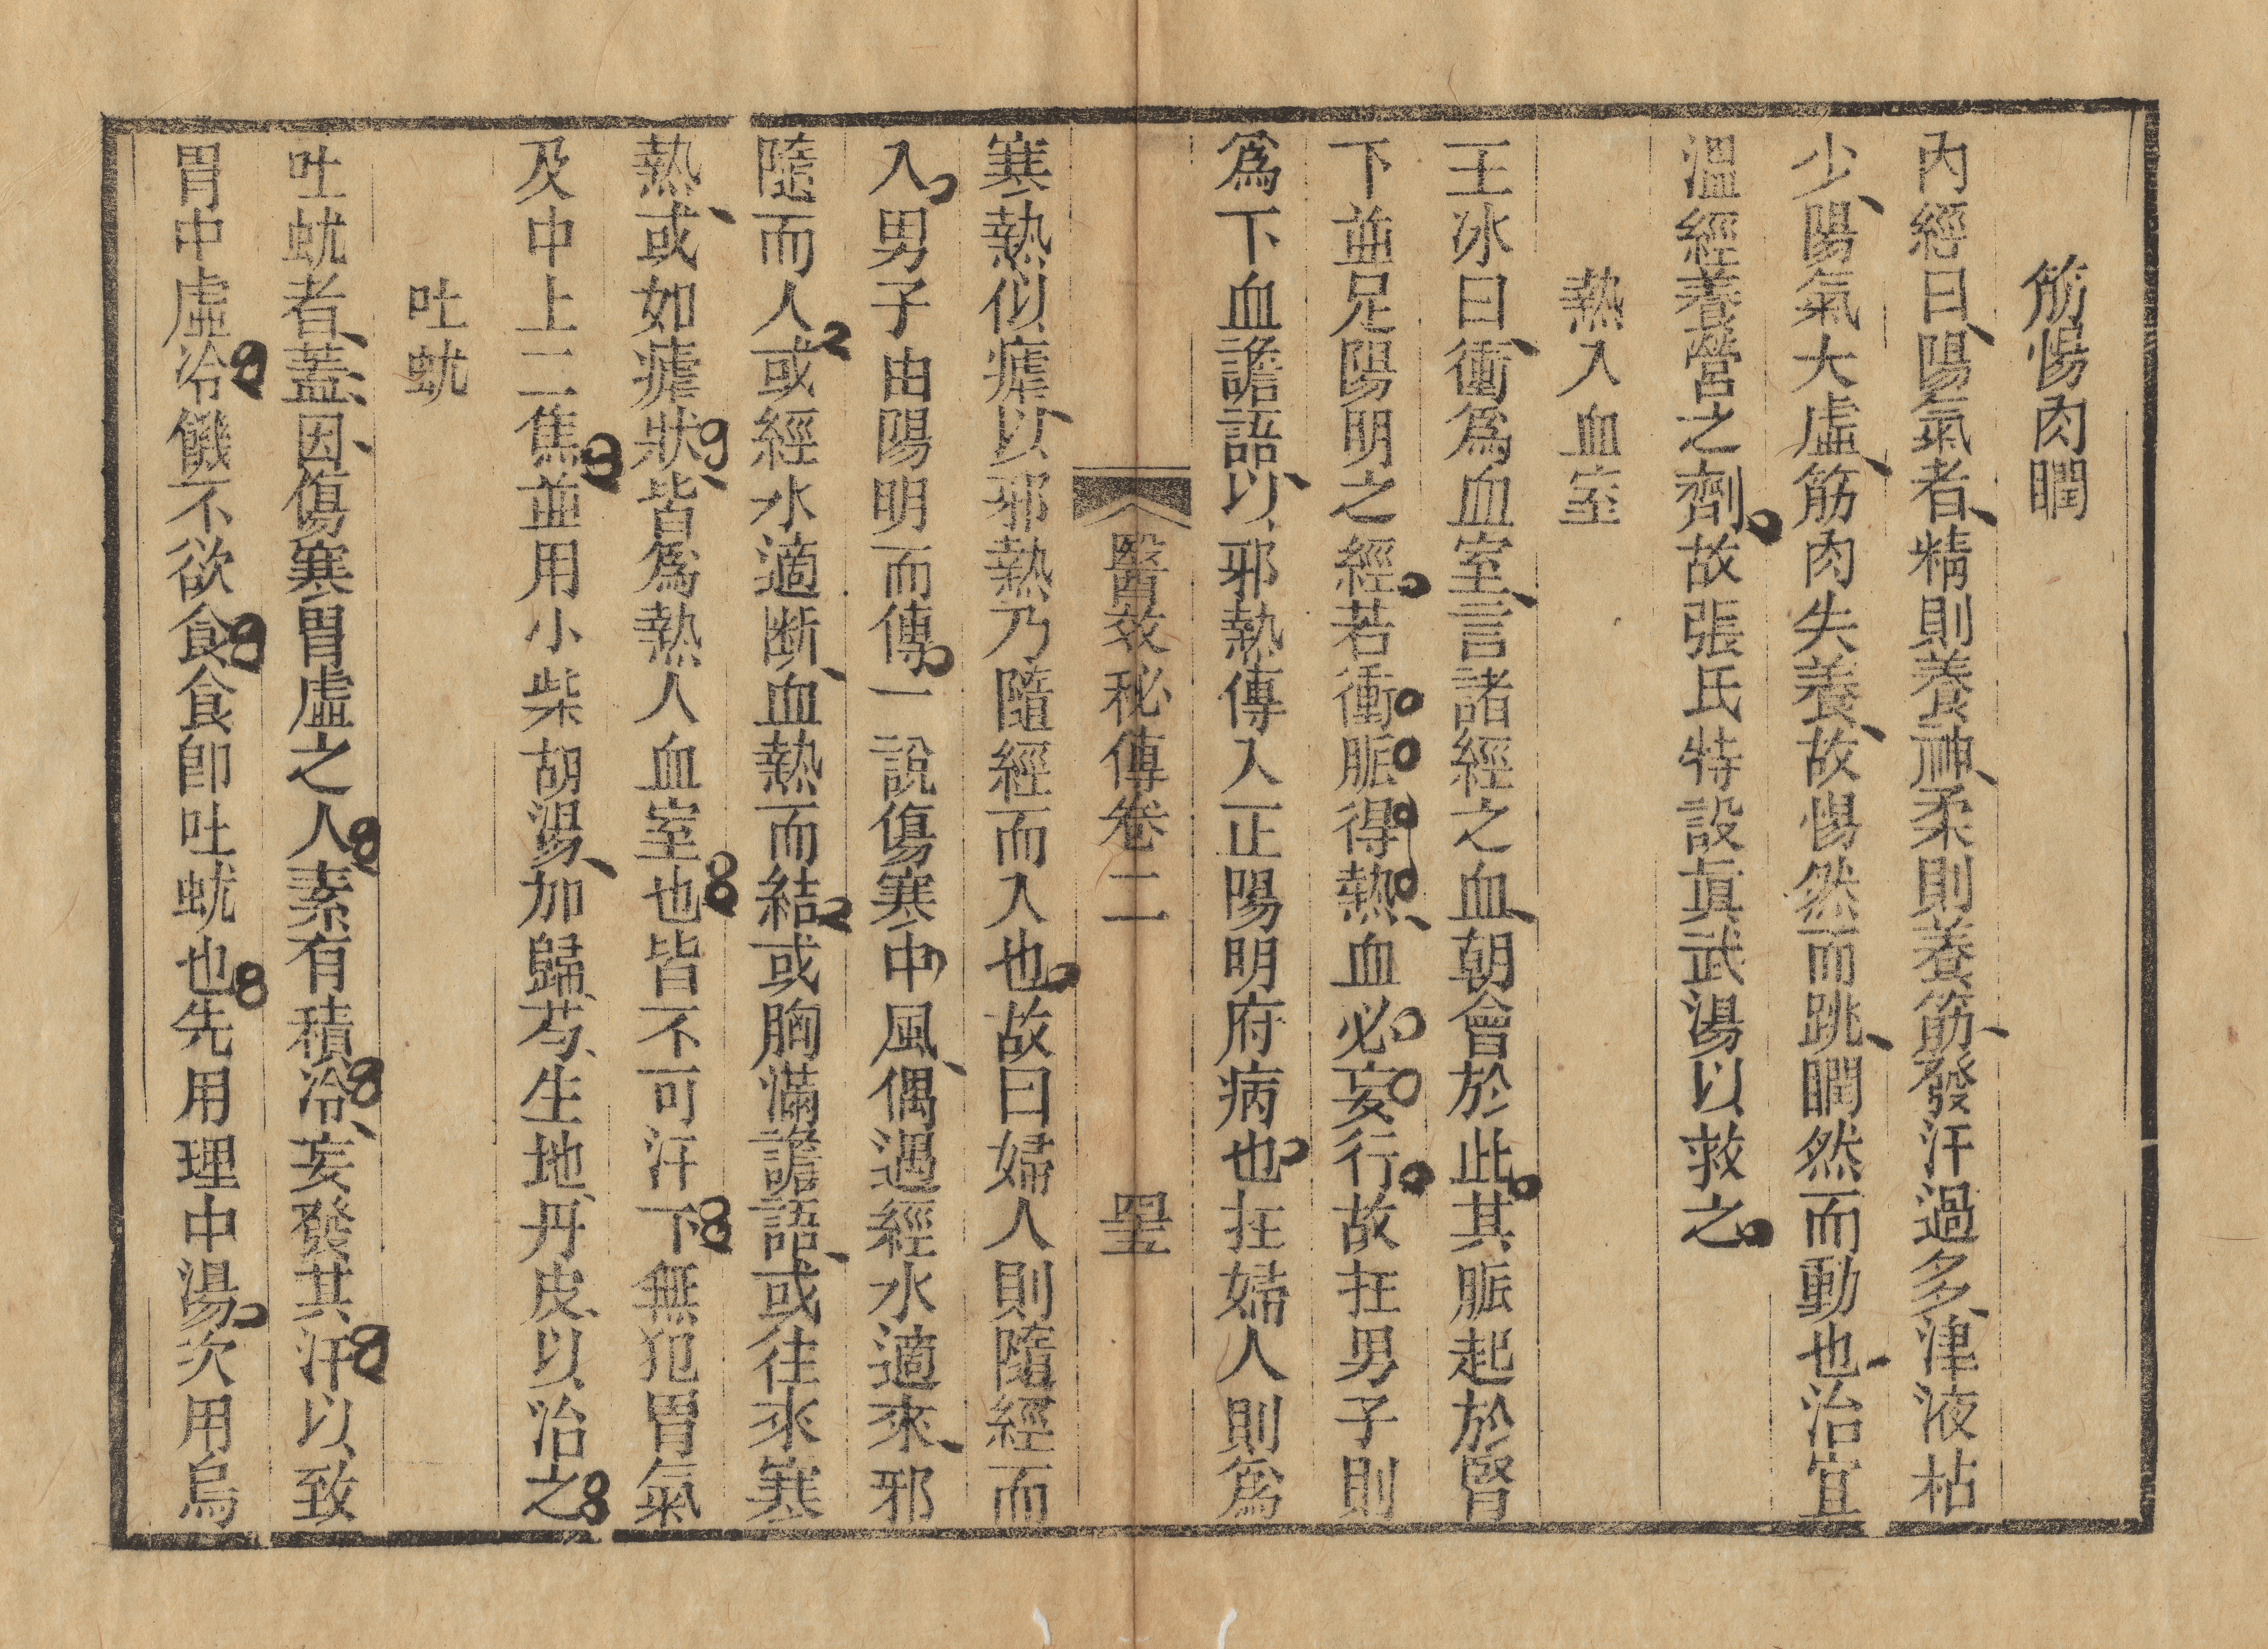 筋惕肉瞤
內經曰陽氣者精則養神柔則養筋發汗過多津液枯
少陽氣大虛筋肉失養故惕然而跳瞤然而動也治宜
溫經養營之劑故張氏特設眞武湯以救之
熱入血室
王冰曰衝爲血室言諸經之血朝會於此其脈起於腎
下並足陽明之經若衝脈得熱血必妄行故在男子則
爲下血譫語以邪熱傳入正陽明府病也在婦人則爲
醫效秘傳卷二
寒熱似瘧以邪熱乃隨經而入也故曰婦人則隨經而
入男子由陽明而傳一說傷寒中風偶遇經水適來邪
隨而人或經水適断血熱而結或胸滿譫語或往來寒
熱或如瘧狀皆爲熱人血室也皆不可汗下無犯胃氣
及中上二焦並用小柴胡湯加歸芍生地丹皮以治之
吐蚘
吐蚘者蓋因傷寒胃虛之人素有積冷妄發其汗以致
胃中虛冷饑不欲食食卽吐蚘也先用理中湯次用烏